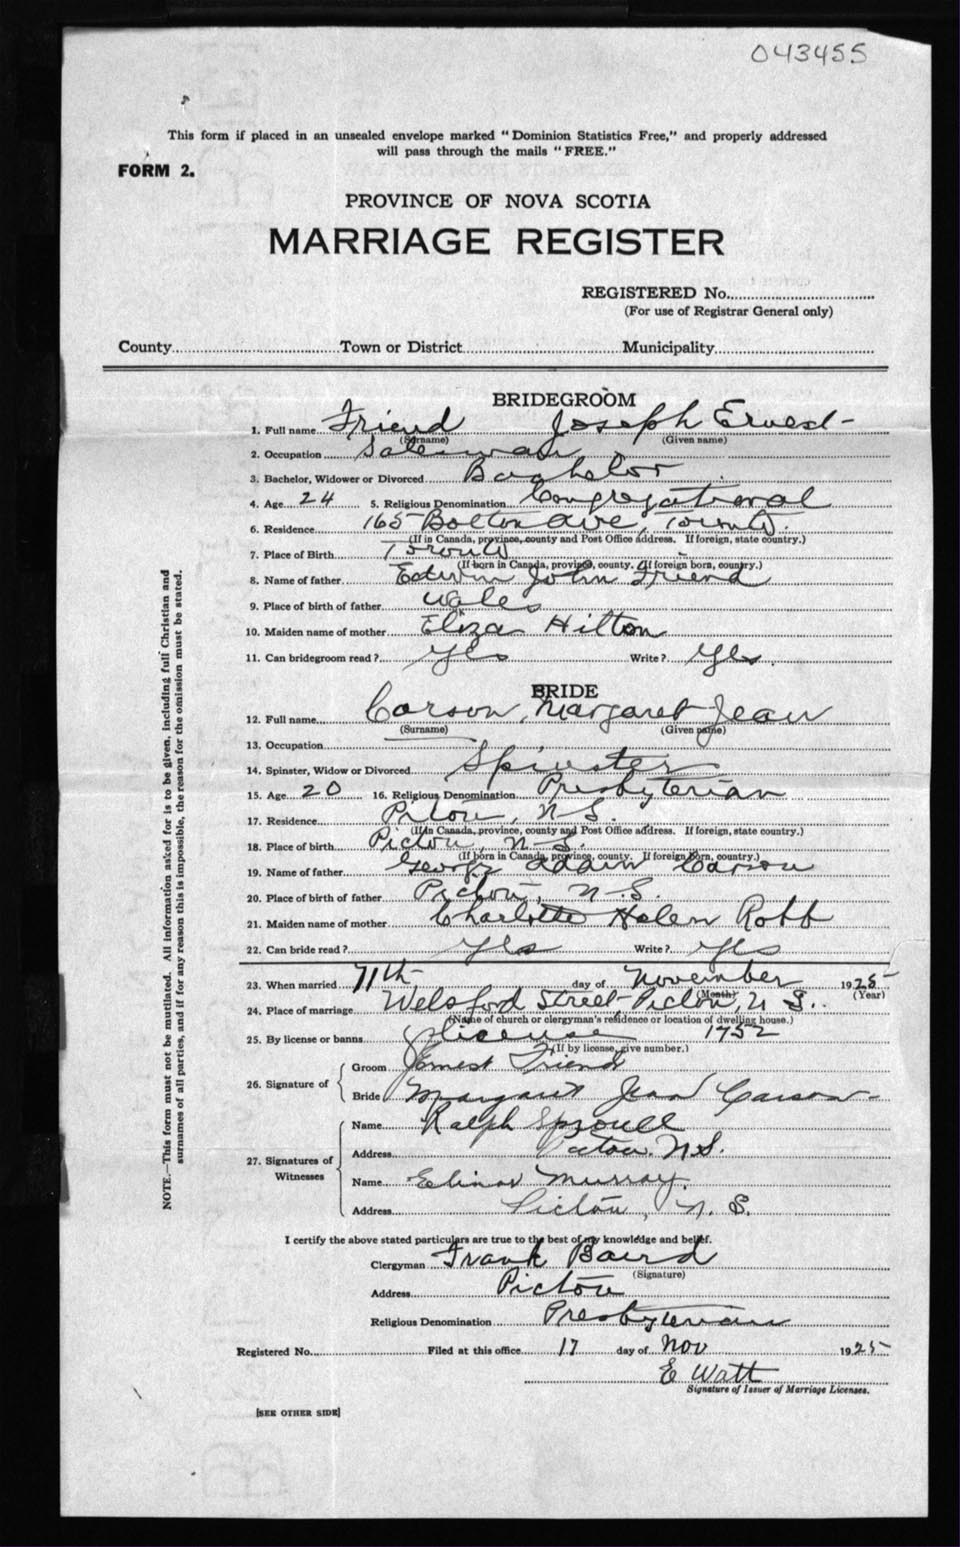 043455
This form if placed in an unsealed envelope marked "Dominion Statistics Free," and properly addressed
will pass through the mails "FREE."
FORM 2.
PROVINCE OF NOVA SCOTIA
MARRIAGE REGISTER
REGISTERED No.
(For use of Registrar General only)
County Town or District Municipality
BRIDEGROOM
1. Full name Friend Joseph Ernest
(Surname) (Given name)
2. Occupation Salesman
3. Bachelor, Widower or Divorced Bachelor
4. Age 24 5. Religious Denomination Congregational
6. Residence 165 Bolton ave, Toronto.
(If in Canada, province, county and Post Office address. If foreign, state country.)
7. Place of Birth Toronto
(If born in Canada, province, county. If foreign born, country.)
8. Name of father Edwin John Friend
9. Place of birth of father Wales
10. Maiden name of mother Eliza Hilton
11. Can bridegroom read? Yes Write? Yes.
BRIDE
12. Full name Carson, Margaret Jean
(Surname) (Given name)
13. Occupation
14. Spinster, Widow or Divorced Spinster
15. Age 20 16. Religious Denomination Presbyterian
17. Residence Pictou, N.S.
(If in Canada, province, county and Post Office address. If foreign, state country.)
18. Place of birth Pictou, N.S.
(If born in Canada, province, county. If foreign born, country.)
19. Name of father George Adam Carson
20. Place of birth of father Pictou, N.S.
21. Maiden name of mother Charlotte Helen Robb
22. Can bride read? Yes Write? Yes
23. When married 11th day of November 1925
(Month) (Year)
24. Place of marriage Welsford Street, Pictou, N S.
(Name of church or clergyman's residence or location of dwelling house.)
25. By license or banns license 1752
(If by license, give number.)
26. Signature of
Groom Ernest Friend
Bride Margaret Jean Carson
27. Signatures of Witnesses
Name Ralph Sproull
Address Pictou. N.S.
Name Elinor Murray.
Address Pictou, N. S.
I certify the above stated particulars are true to the best of my knowledge and belief.
Clergyman Frank Baird
(Signature)
Address Pictou
Religious Denomination Presbyterian
Registered No. Filed at this office 17 day of Nov 1925
E Watt
Signature of Issuer of Marriage Licenses.
[SEE OTHER SIDE]
NOTE.—This form must not be mutilated. All information asked for is to be given, including full Christian and
surnames of all parties, and if for any reason this is impossible, the reason for the omission must be stated.